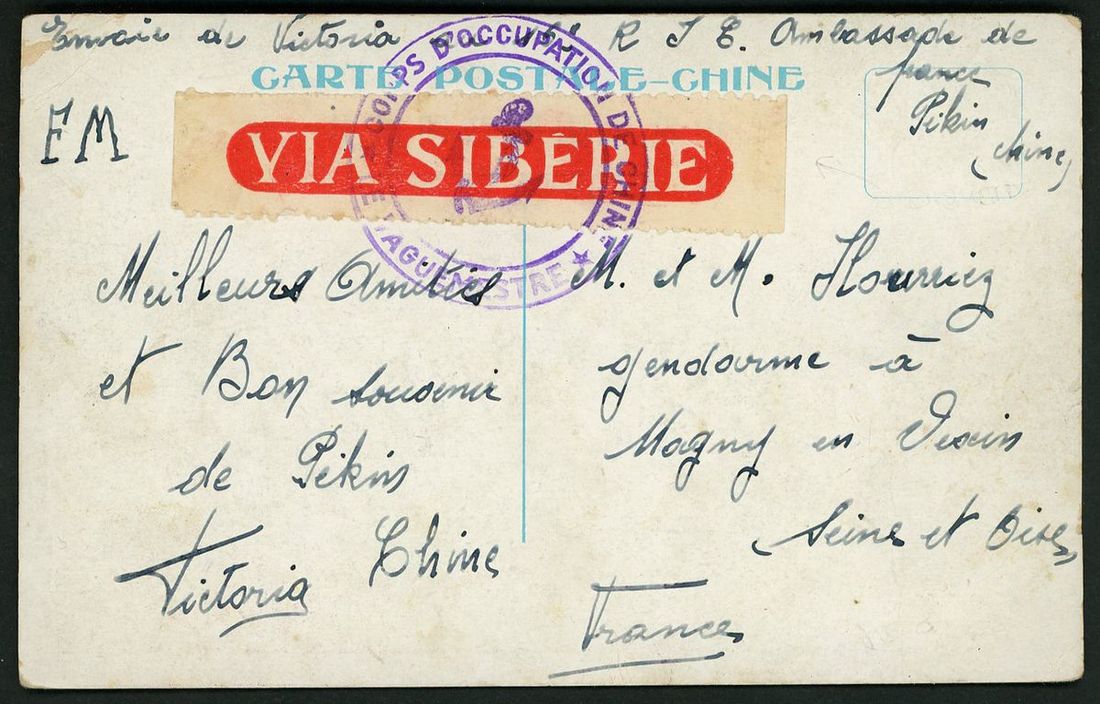 Envoie de Victoria R I C. Ambassade de
france
Pékin
(Chine)
CARTE POSTALE-CHINE
FM
CORPS D'OCCUPATION DE CHINE
VAGUEMESTRE
VIA SIBÉRIE
Meilleurs Amitiés
et Bon souvenir
de Pékin
Chine
Victoria
M. et M. Hourriez
gendarme à
Magny en Vexin
(Seine et Oise)
France